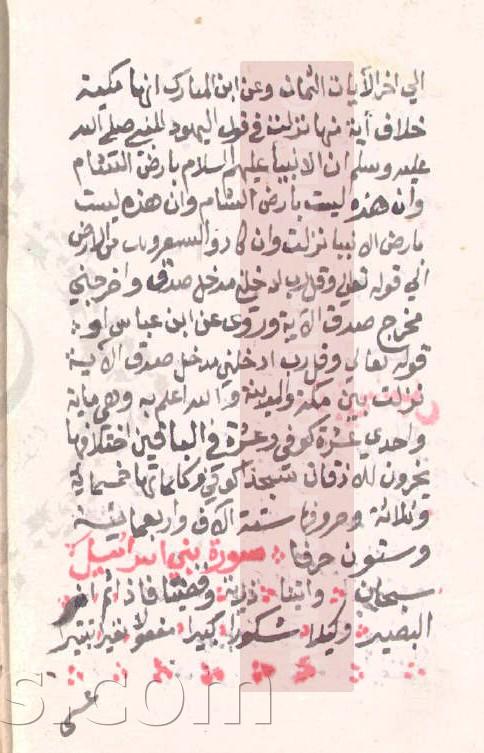 الي اخر الآيات الثمان وعن ابن المبارك انها مكية
خلاف آية منها نزلت في قول اليهود للنبي صلي الله
عليه وسلم ان الانبيا عليهم السلام بارض الشام
وان هذه ليست بارض الشام وان هذه ليست
بارض الانبيا نزلت وان كادوا ليستفزونك من الارض
الي قوله تعالي وقل رب ادخلني مدخل صدق واخرجني
مخرج صدق الآية وروي عن ابن عباس او
قوله تعالي وقل رب ادخلني مدخل صدق الآية
نزلت بين مكة والمدينة والله اعلم به وهي ماية
واحدي عشرة كوفي وعشرة في الباقين اختلافها
يخرون للاذقان سجدا كوفي وكلماتها خمسماية
وثلاثة وحروفها ستة آلاف واربعماية
وستون حرفا سورة بني اسرائيل
سبحان واتينا ذرية وقضينا فاذا
البصير وكيلا شكورا كبيرا مفعولا نفيرا تتبيرا
عسى
s.com